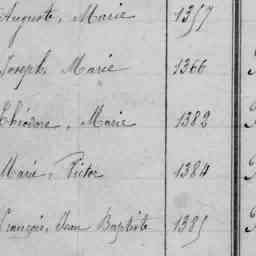 Auguste, Marie 1357
Joseph, Marie 1366
Théodore, Marie 1382
Marie, Victor 1384
François, Jean Baptiste 1385